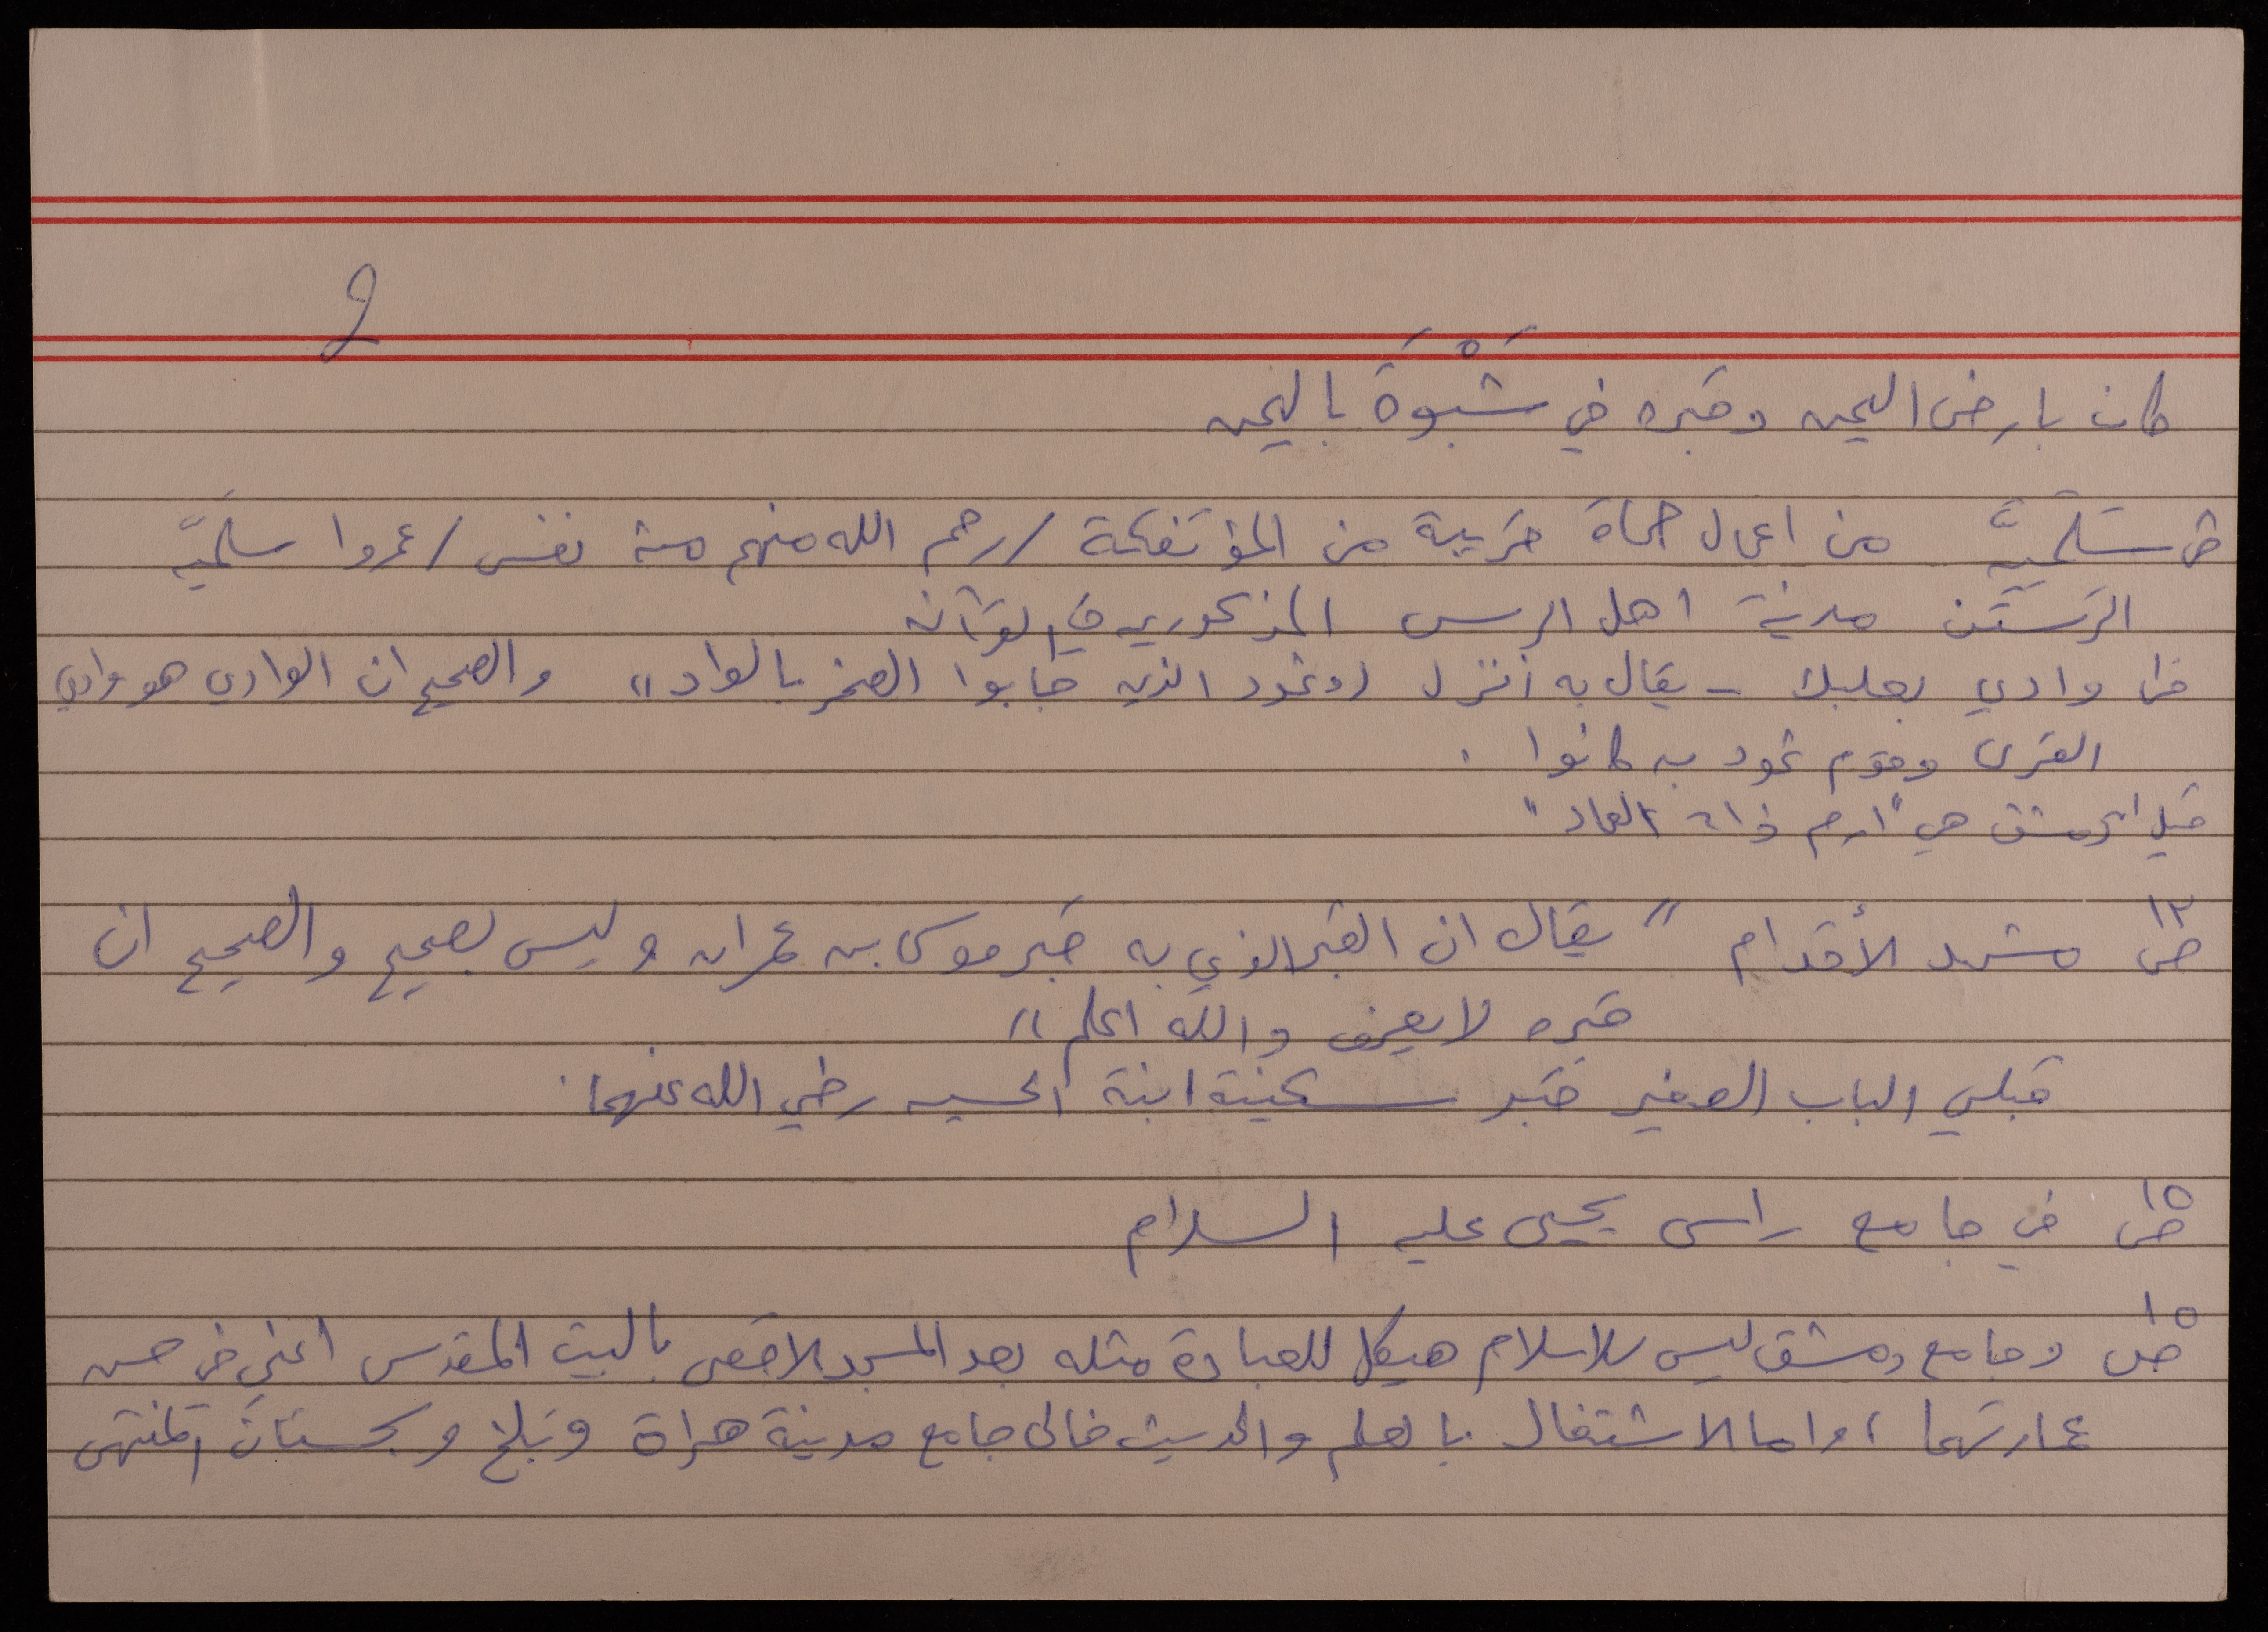 و
كان بارض اليمن وقبره في شَبْوَة باليمن
ص سَلَميَّه من اعمال حماة قريبة من المؤتفكة / رحم الله منهم مئة نفس / عمروا سلَميّه
الرَستَن مدينة اهل الرس المذكورين في القرآن
ص وادي بعلبك - يقال به انزل (( وثمود الذين جابوا الصخر بالواد )) والصحيح ان الوادي هو وادي
القرى وقوم ثمود به كانوا .
قيل ان دمشق هي "ارم ذات العماد"
ص ١٢ مشهد الأقدام " يقال ان القبر الذي به قبر موسى بن عمران وليس بصحيح والصحيح ان
قبره لا يعرف والله اعلم "
قبلي الباب الصغير قبر سكينة ابنة الحسين رضي الله عنهما .
ص ١٥ في جامع راس يحيى عليه السلام
ص ١٥ وجامع دمشق ليس للاسلام هيكل للعبادة مثله بعد المسجد الاقصى بالبيت المقدس اعني في حسن
عمارتهما ، واما الاشتغال بالعلم والحديث فالى جامع مدينة هراة وبَلخ وسجستان المنتهى